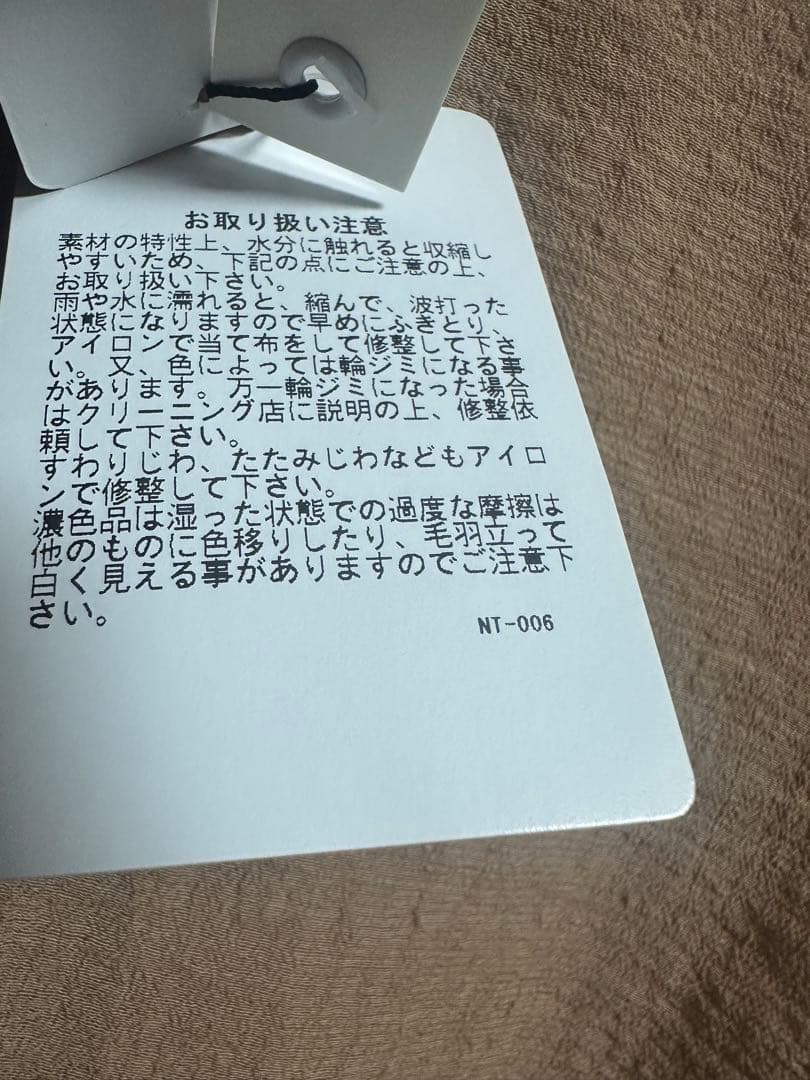 お取り扱い注意
素材の特性上、水分に触れると収縮し
やすいため、下記の点にご注意の上、
お取り扱い下さい。
雨や水に濡れると、縮んで、波打った
状態になりますので早めにふきとり、
アイロンで当て布をして修整して下さ
い。又、色によっては輪ジミになる事
があります。万一輪ジミになった場合
はクリーニング店に説明の上、修整依
頼して下さい。
すわりじわ、たたみじわなどもアイロ
ンで修整して下さい。
濃色品は湿った状態での過度な摩擦は
他のものに色移りしたり、毛羽立って
白く見える事がありますのでご注意下
さい。
NT-006